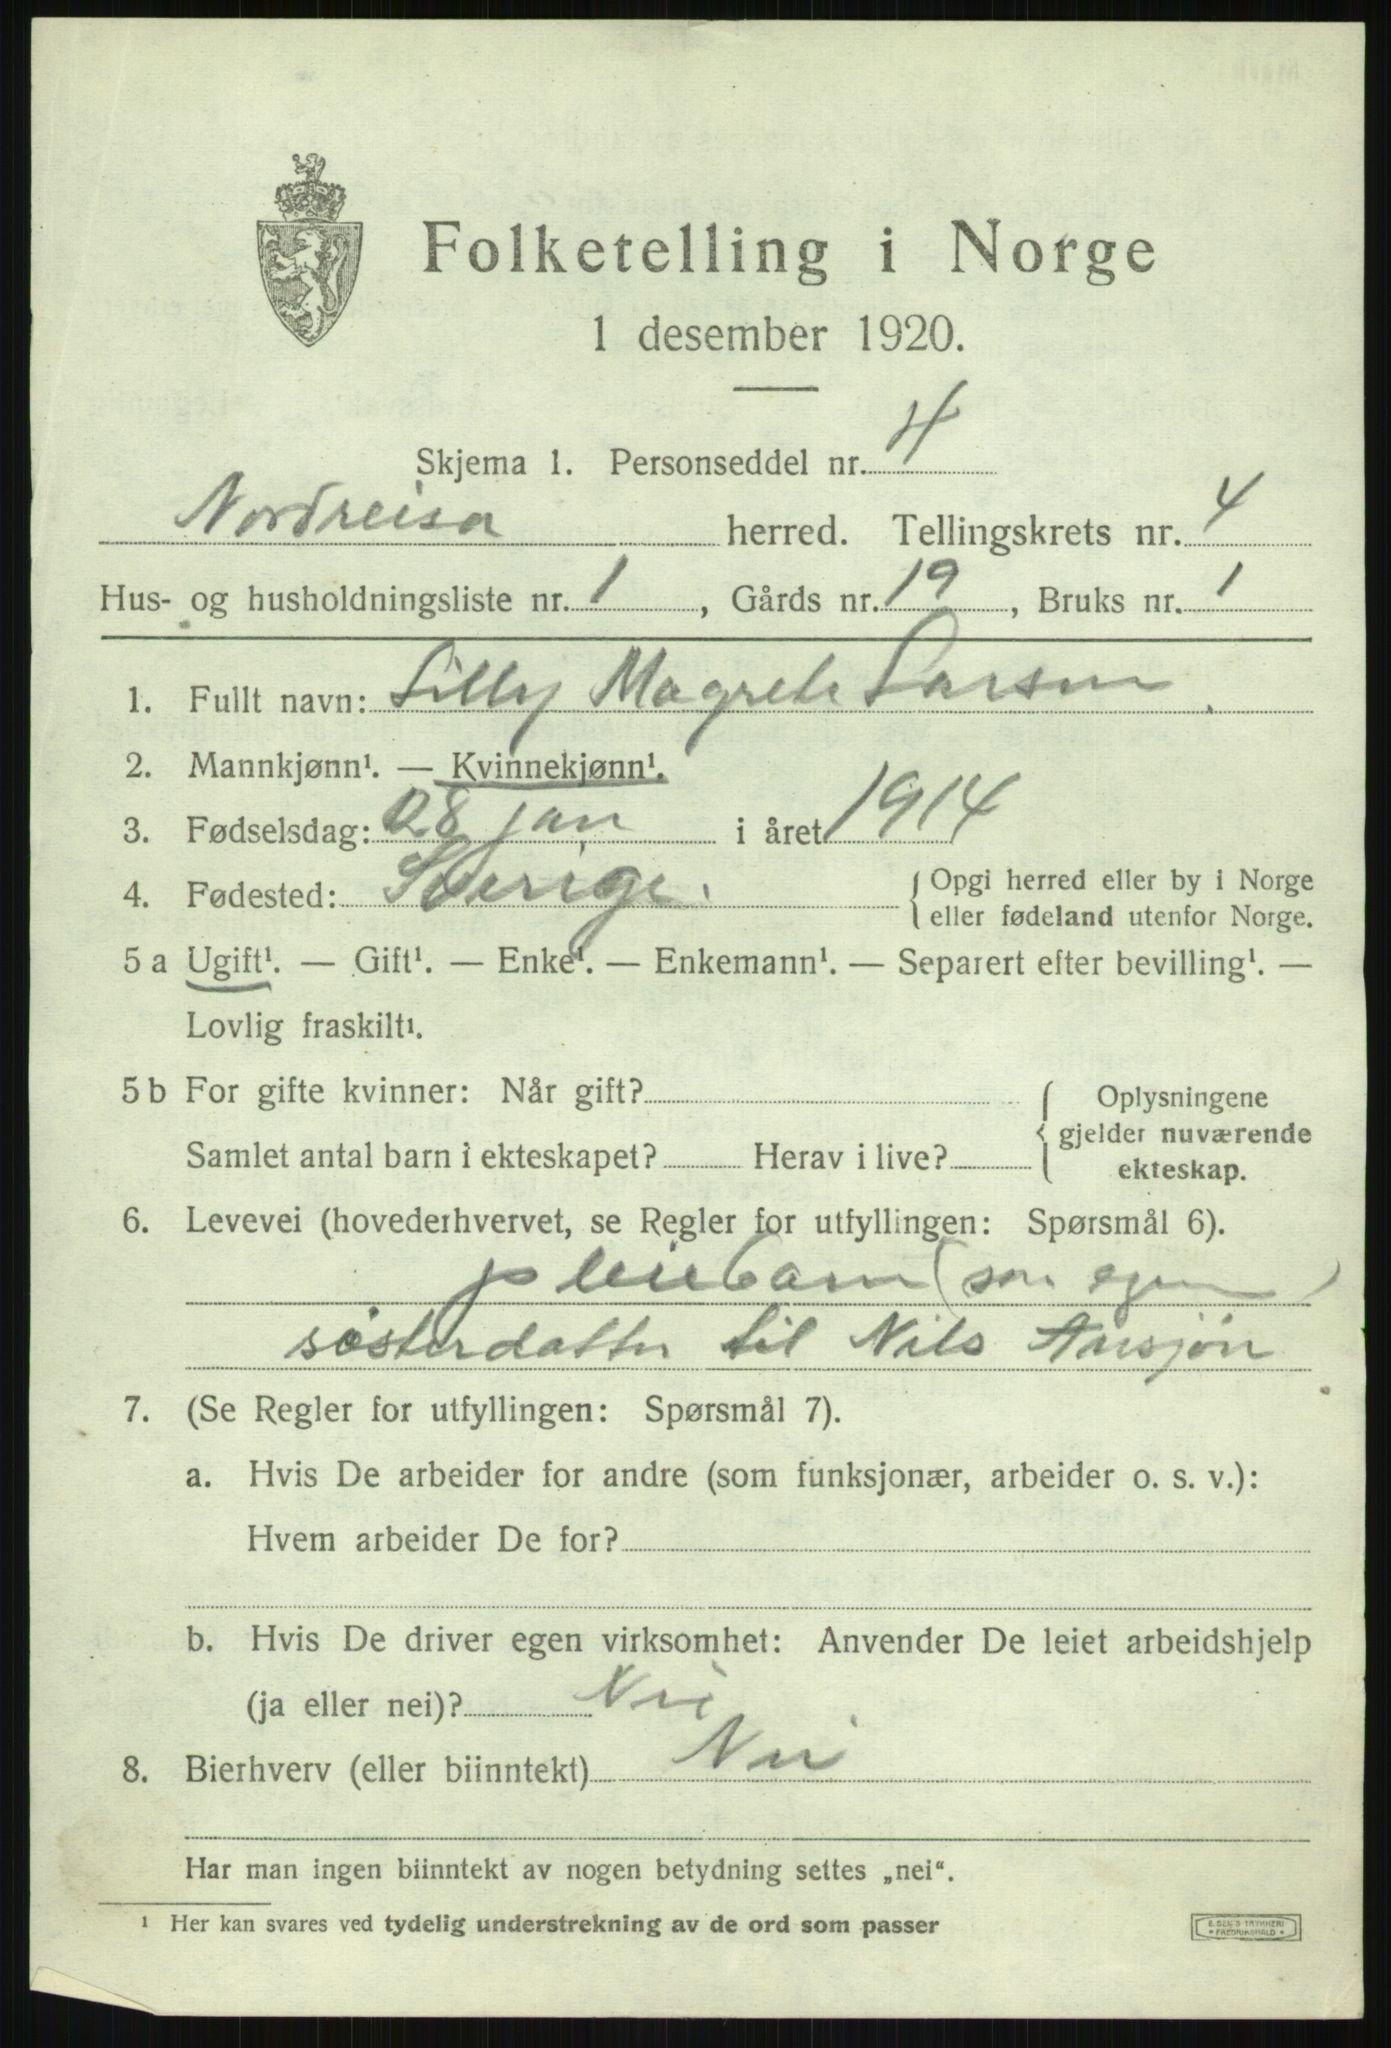 Folketelling i Norge
1 desember 1920.
Skjema 1. Personseddel nr. 4
Nordreisa herred. Tellingskrets nr. 4
Hus- og husholdningsliste nr. 1, Gårds nr. 19, Bruks nr. 1
1. Fullt navn: Lilly Magrete Larsen
2. Mannkjønn¹. — Kvinnekjønn¹.
3. Fødselsdag: 28 jan i året 1914
4. Fødested: Sverige. { Opgi herred eller by i Norge
eller fødeland utenfor Norge.
5 a Ugift¹. — Gift¹. — Enke¹. — Enkemann¹. — Separert efter bevilling¹. —
Lovlig fraskilt¹.
5 b For gifte kvinner: Når gift? { Oplysningene
gjelder nuværende
Samlet antal barn i ekteskapet? Herav i live?
ekteskap.
6. Levevei (hovederhvervet, se Regler for utfyllingen: Spørsmål 6).
pleiebarn (som egen)
søsterdatter til Nils
7. (Se Regler for utfyllingen: Spørsmål 7).
a. Hvis De arbeider for andre (som funksjonær, arbeider o. s. v.):
Hvem arbeider De for?
b. Hvis De driver egen virksomhet: Anvender De leiet arbeidshjelp
(ja eller nei)? Nei
8. Bierhverv (eller biinntekt) Nei
Har man ingen biinntekt av nogen betydning settes „nei“.
¹ Her kan svares ved tydelig understrekning av de ord som passer